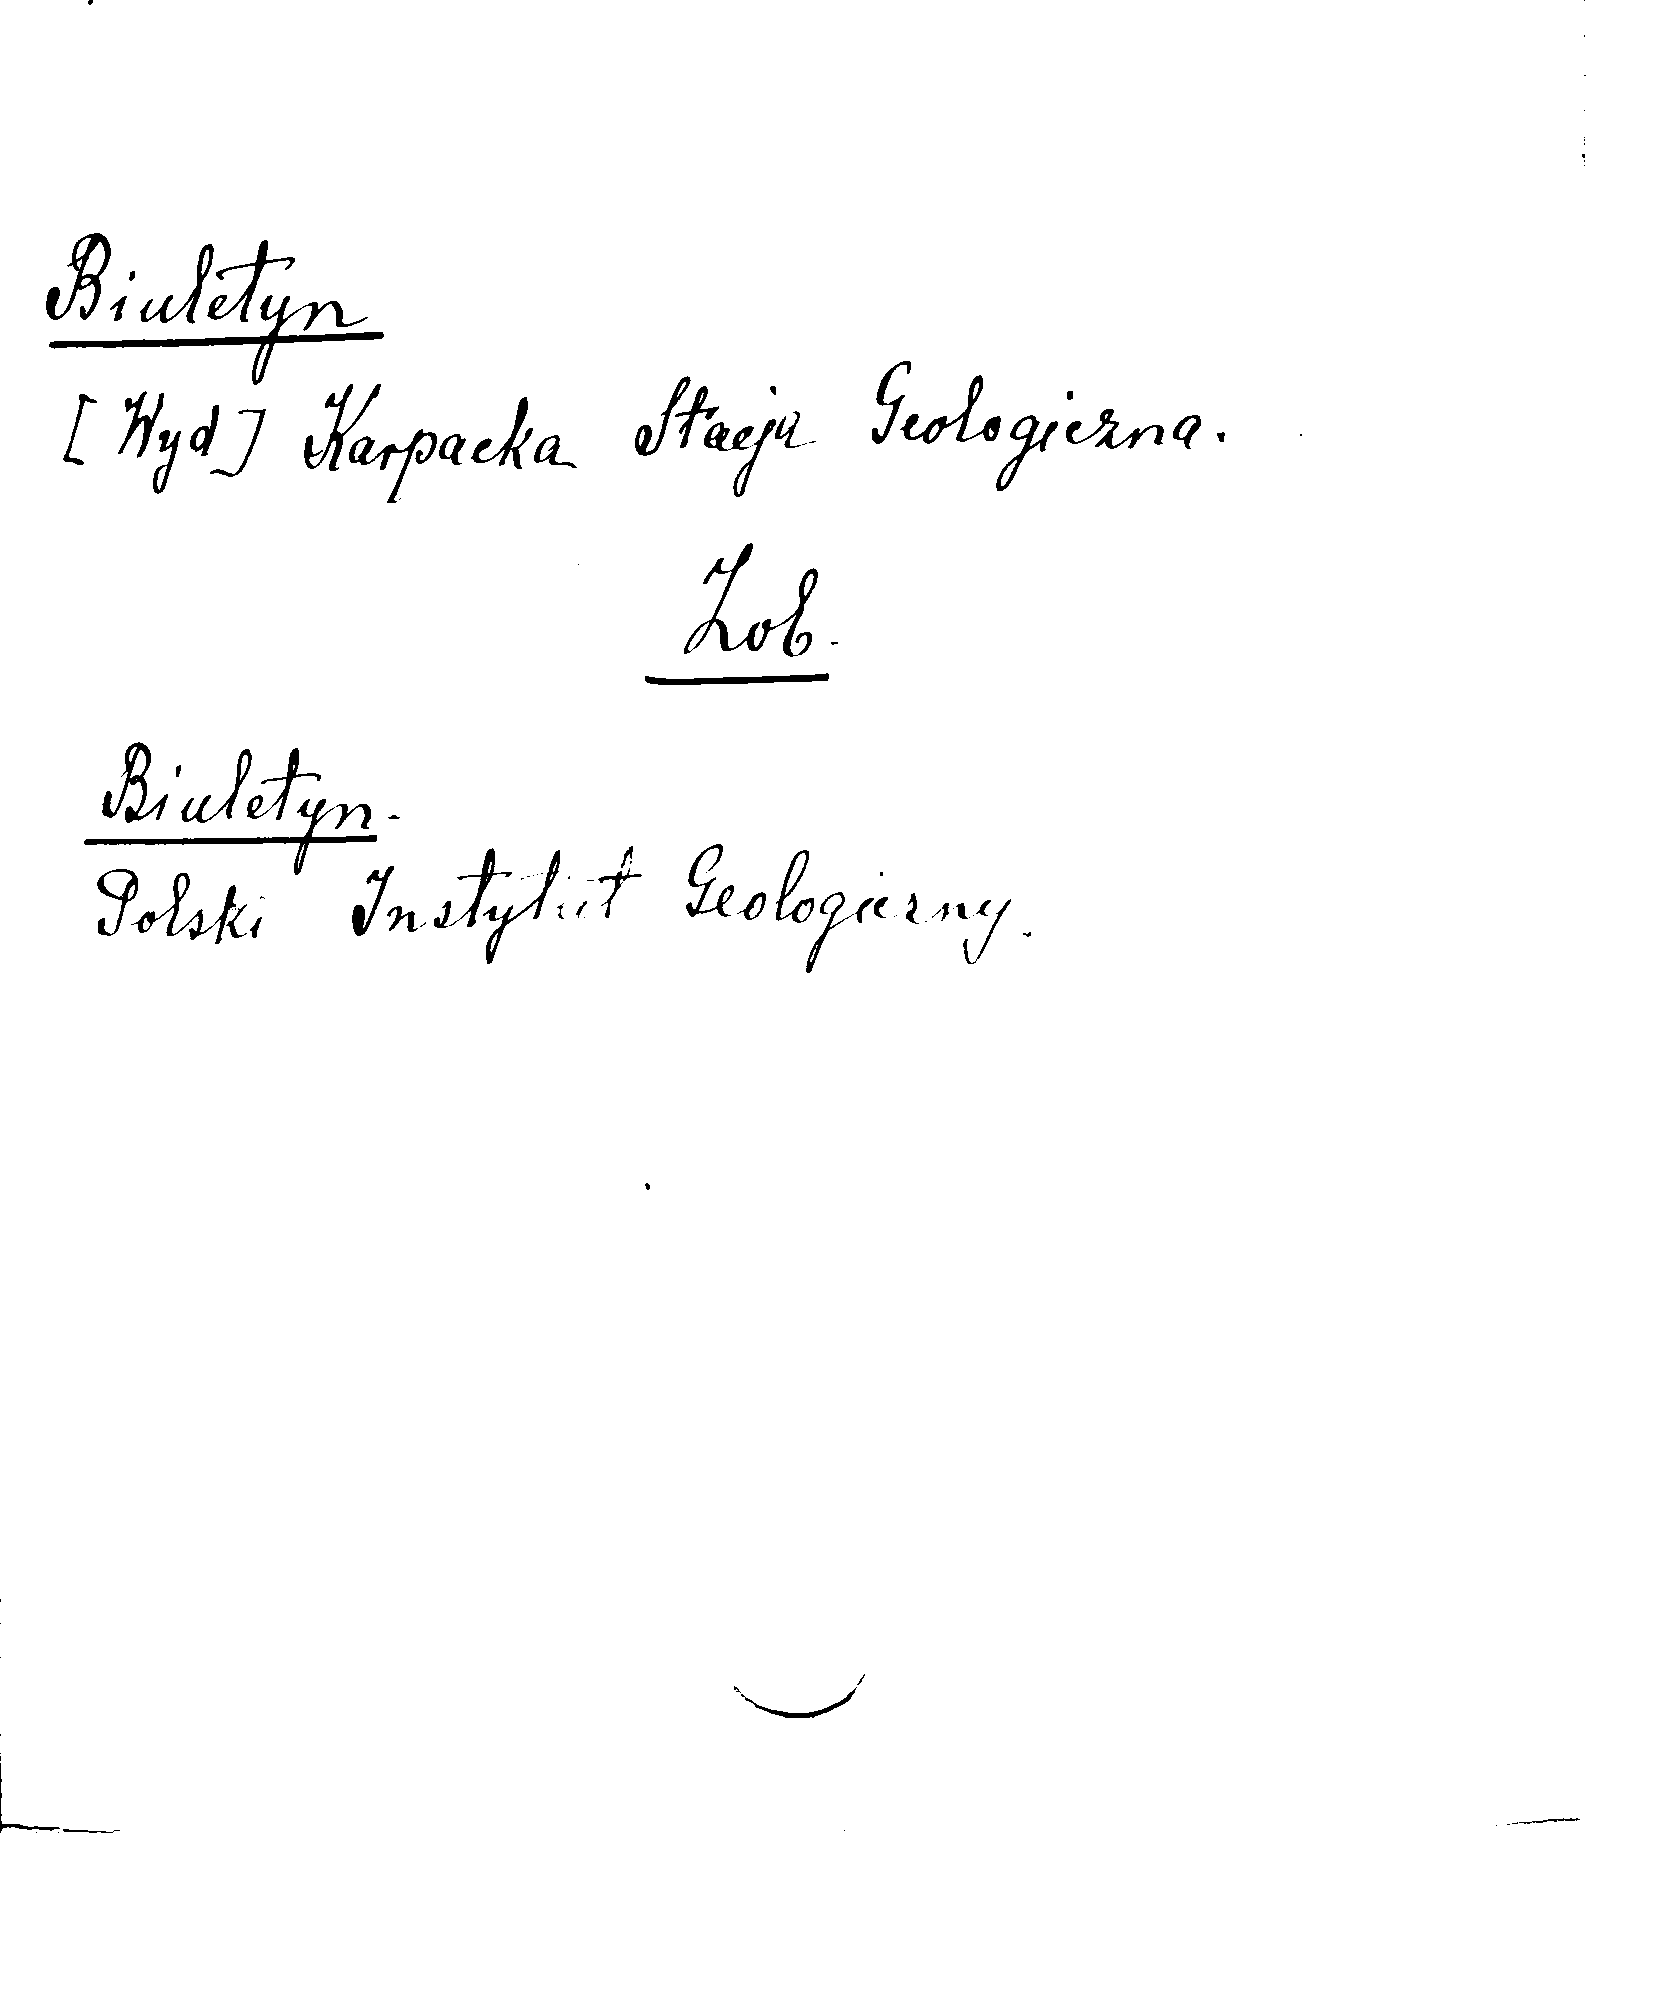 Biuletyn
[Wyd] Karpacka Stacja Geologiczna.
Zob.
Biuletyn.
Polski Instytut Geologiczny.